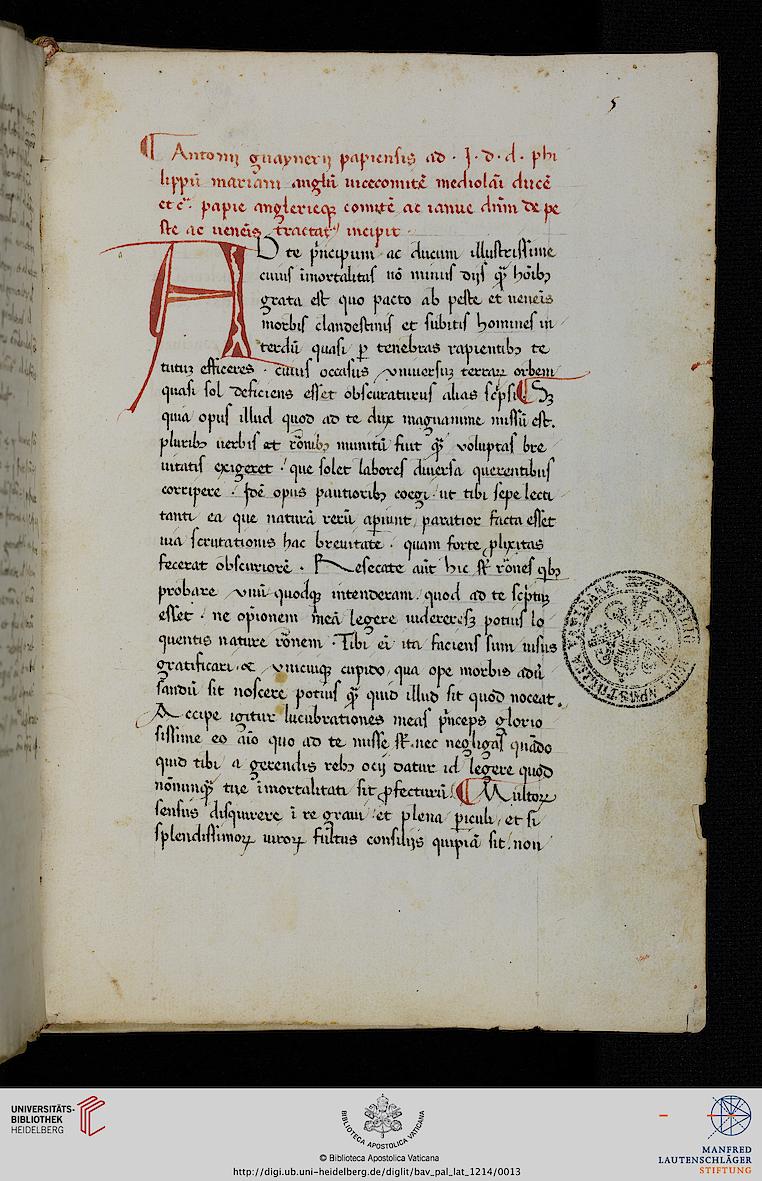 5
Antonij guaynerij papiensis ad · J · d · d · phi
lippū mariam anglū vicecomitē mediolāī ducē
et cͣ. papie anglerieqꝫ comitē ac ianue dn̄m de pe
ste ac uenēis tractatꝰ incipit ·
AD te pͥncipum ac ducum illustrissime
cuius īmortalitas nō minus dijs qͣꝫ hōibꝫ
grata est quo pacto ab peste et uenēis
morbis clandestinis et subitis homines in
terdū quasi ꝑ tenebras rapientibꝫ te
tutum efficeres · cuius occasus vniuersus terrarꝝ orbem
quasi sol deficiens esset obscuraturus alias scͥpsi ¶ Sꝫ
quia opus illud quod ad te dux magnanime missū est.
pluribꝫ uerbis et rōnibꝫ munitū fuit qͣꝫ voluptas bre
uitatis exigeret · que solet labores diuersa querentibus
corripere · Jdē opus pautioribꝫ coegi · ut tibi sepe lecti
tanti ea que naturā rerū aꝑiunt, paratior facta esset
uia scrutationis hac breuitate · quam forte ꝓlixitas
fecerat obscuriorē · Resecate aūt hic sꝉ rōnes qͥbꝫ
probare vnū quodqꝫ intenderam, quod ad te scͥptuꝫ
esset · ne opīonem meā legere videreris potius lo
quentis nature rōnem · Tibi eī ita faciens sum uisus
gratificari · et vnicuiqꝫ cupido, qua ope morbis adū
sandū sit noscere potius qͣꝫ quid illud sit quod noceat.
Accipe igitur lucubrationes meas pͥnceps glorio
sissime eo aīo quo ad te misse sꝉ. nec negligas quādo
quid tibi a gerendis rebꝫ ocij datur id legere quod
nōnunqͣꝫ tue īmortalitati sit ꝓfecturū ¶ Multorꝝ
sensus disquirere ī re graui et plena ꝑiculi, et si
splendissimorꝝ uirorꝝ fultus consilijs quipiā sit. non
UNIVERSITÄTS-
BIBLIOTHEK
HEIDELBERG
BIBLIOTECA APOSTOLICA VATICANA
© Biblioteca Apostolica Vaticana
http://digi.ub.uni-heidelberg.de/diglit/bav_pal_lat_1214/0013
MANFRED
LAUTENSCHLÄGER
STIFTUNG